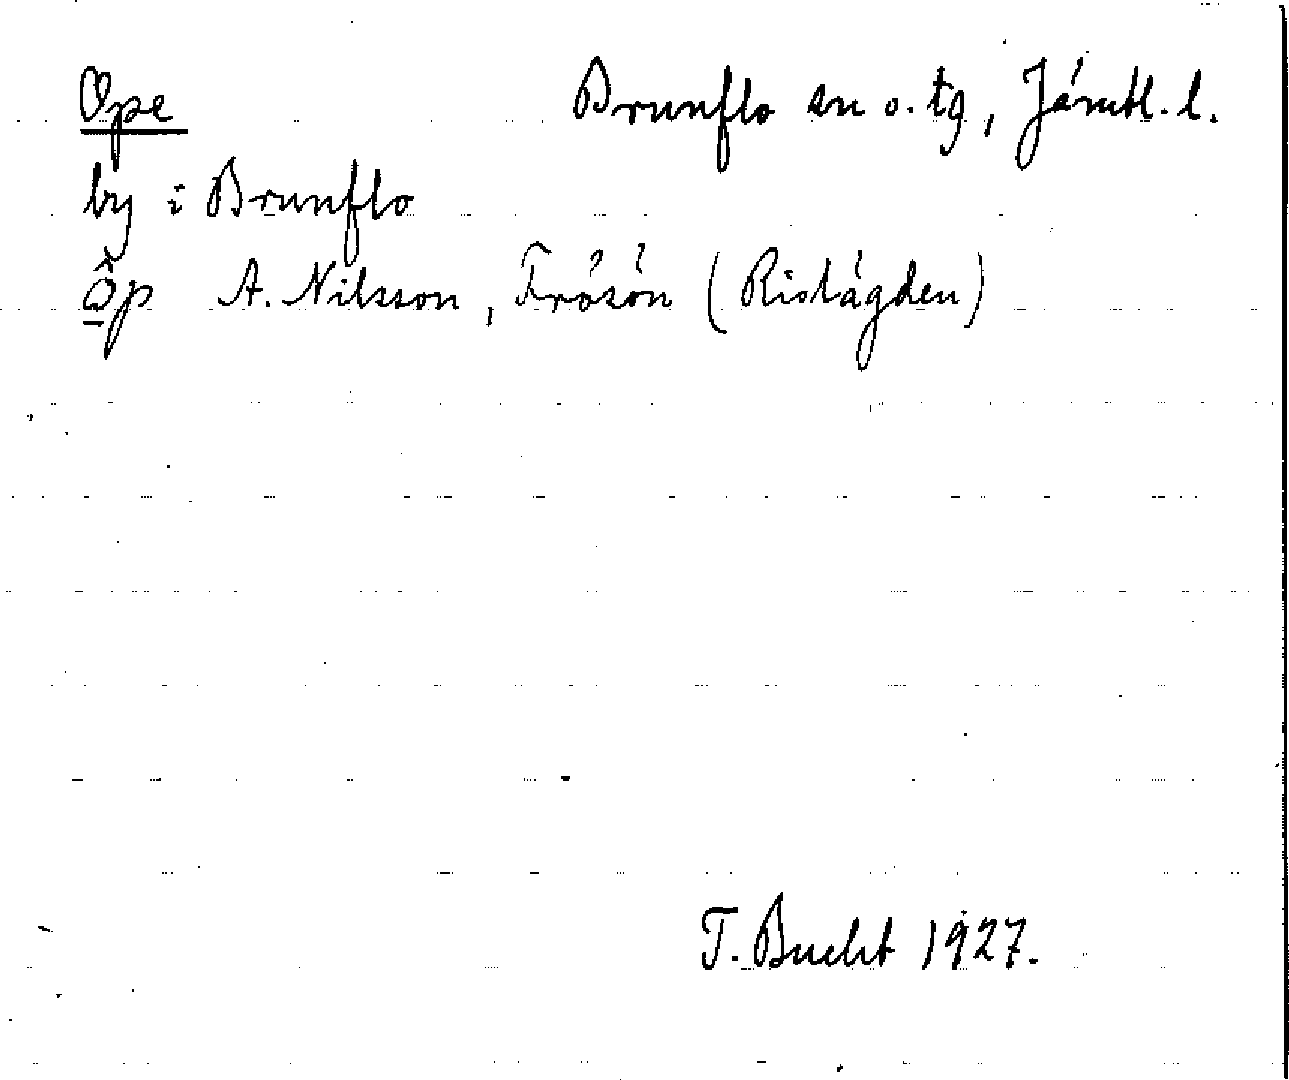 Ope Brunflo sn o. tg, Jämtl. l.
by i Brunflo
ô̱p A. Nilsson, Frösön (Ristägden)
T. Bucht 1927.